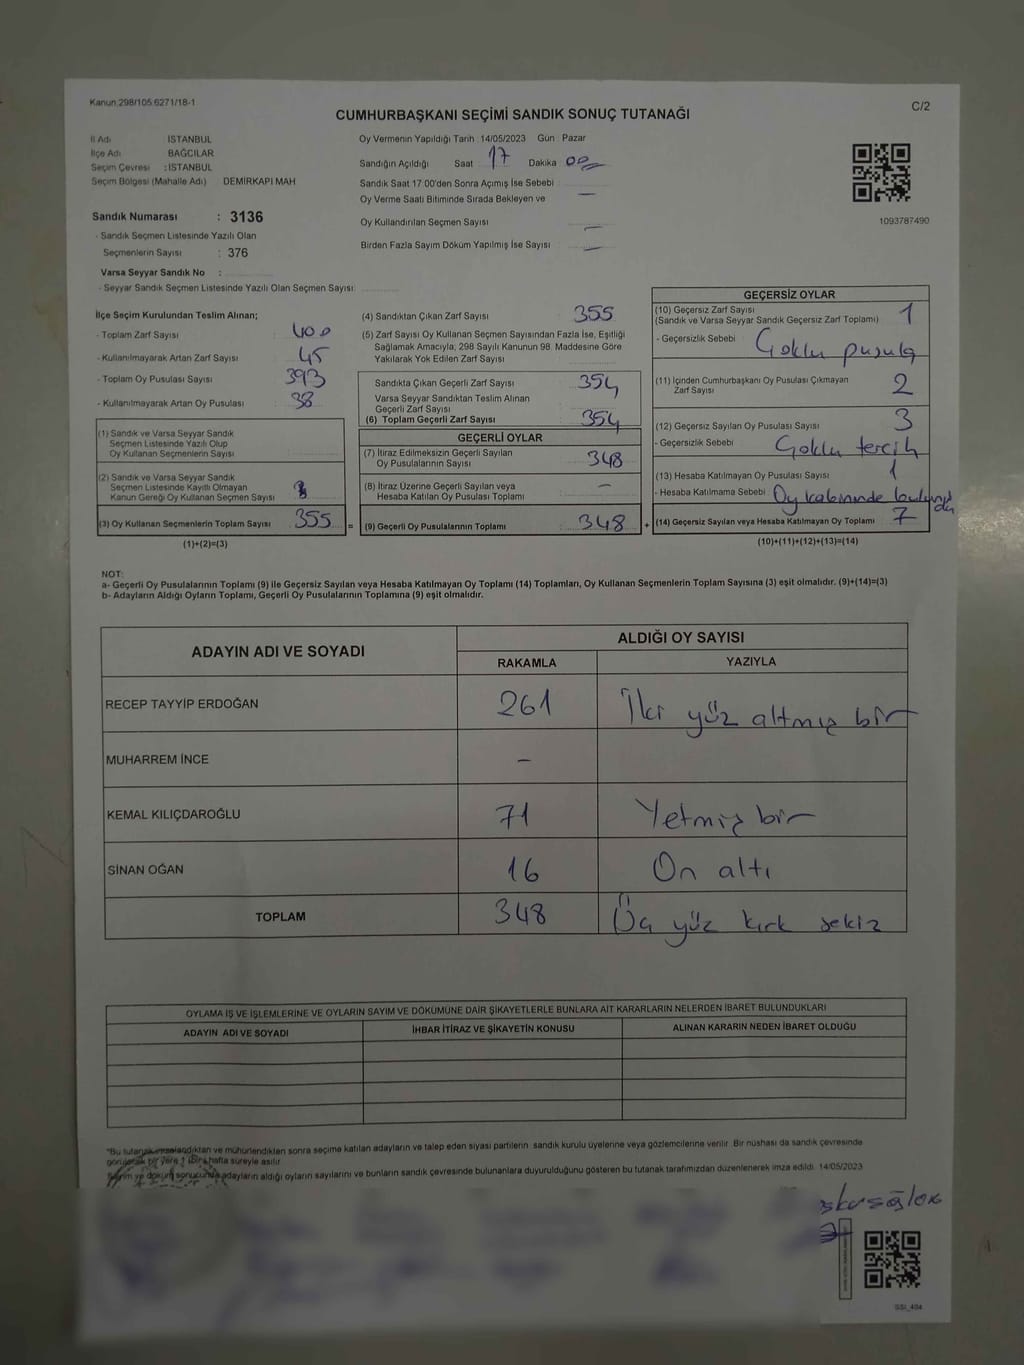 Kanun.298/105.6271/18-1
C/2
CUMHURBAŞKANI SEÇİMİ SANDIK SONUÇ TUTANAĞI
İl Adı : İSTANBUL
İlçe Adı : BAĞCILAR
Seçim Çevresi : İSTANBUL
Seçim Bölgesi (Mahalle Adı) DEMİRKAPI MAH
Sandık Numarası : 3136
- Sandık Seçmen Listesinde Yazılı Olan
Seçmenlerin Sayısı : 376
Varsa Seyyar Sandık No :
- Seyyar Sandık Seçmen Listesinde Yazılı Olan Seçmen Sayısı:
Oy Vermenin Yapıldığı Tarih :14/05/2023 Gün : Pazar
Sandığın Açıldığı Saat 17 Dakika 00
Sandık Saat 17:00'den Sonra Açımış İse Sebebi :
Oy Verme Saati Bitiminde Sırada Bekleyen ve —
Oy Kullandırılan Seçmen Sayısı : —
Birden Fazla Sayım Döküm Yapılmış İse Sayısı : —
1093787490
İlçe Seçim Kurulundan Teslim Alınan;
- Toplam Zarf Sayısı : 400
- Kullanılmayarak Artan Zarf Sayısı : 45
- Toplam Oy Pusulası Sayısı : 393
- Kullanılmayarak Artan Oy Pusulası : 38
(1) Sandık ve Varsa Seyyar Sandık
Seçmen Listesinde Yazılı Olup
Oy Kullanan Seçmenlerin Sayısı :
(2) Sandık ve Varsa Seyyar Sandık
Seçmen Listesinde Kayıtlı Olmayan
Kanun Gereği Oy Kullanan Seçmen Sayısı :
(3) Oy Kullanan Seçmenlerin Toplam Sayısı : 355 =
(1)+(2)=(3)
(4) Sandıktan Çıkan Zarf Sayısı : 355
(5) Zarf Sayısı Oy Kullanan Seçmen Sayısından Fazla İse, Eşitliği
Sağlamak Amacıyla, 298 Sayılı Kanunun 98. Maddesine Göre
Yakılarak Yok Edilen Zarf Sayısı :
Sandıkta Çıkan Geçerli Zarf Sayısı : 354
Varsa Seyyar Sandıktan Teslim Alınan
Geçerli Zarf Sayısı :
(6) Toplam Geçerli Zarf Sayısı : 354
GEÇERLİ OYLAR
(7) İtiraz Edilmeksizin Geçerli Sayılan
Oy Pusulalarının Sayısı : 348
(8) İtiraz Üzerine Geçerli Sayılan veya
Hesaba Katılan Oy Pusulası Toplamı : —
(9) Geçerli Oy Pusulalarının Toplamı : 348 +
GEÇERSİZ OYLAR
(10) Geçersiz Zarf Sayısı : 1
(Sandık ve Varsa Seyyar Sandık Geçersiz Zarf Toplamı)
- Geçersizlik Sebebi : Çoklu pusula
(11) İçinden Cumhurbaşkanı Oy Pusulası Çıkmayan
Zarf Sayısı : 2
(12) Geçersiz Sayılan Oy Pusulası Sayısı : 3
- Geçersizlik Sebebi : Çoklu tercih
(13) Hesaba Katılmayan Oy Pusulası Sayısı : 1
- Hesaba Katılmama Sebebi : Oy kabininde bulundu
(14) Geçersiz Sayılan veya Hesaba Katılmayan Oy Toplamı : 7
(10)+(11)+(12)+(13)=(14)
NOT:
a- Geçerli Oy Pusulalarının Toplamı (9) ile Geçersiz Sayılan veya Hesaba Katılmayan Oy Toplamı (14) Toplamları, Oy Kullanan Seçmenlerin Toplam Sayısına (3) eşit olmalıdır. (9)+(14)=(3)
b- Adayların Aldığı Oyların Toplamı, Geçerli Oy Pusulalarının Toplamına (9) eşit olmalıdır.
ADAYIN ADI VE SOYADI
ALDIĞI OY SAYISI
RAKAMLA YAZIYLA
RECEP TAYYİP ERDOĞAN 261 İki yüz altmış bir
MUHARREM İNCE –
KEMAL KILIÇDAROĞLU 71 Yetmiş bir
SİNAN OĞAN 16 On altı
TOPLAM 348 Üç yüz kırk sekiz
OYLAMA İŞ VE İŞLEMLERİNE VE OYLARIN SAYIM VE DÖKÜMÜNE DAİR ŞİKAYETLERLE BUNLARA AİT KARARLARIN NELERDEN İBARET BULUNDUKLARI
ADAYIN ADI VE SOYADI İHBAR İTİRAZ VE ŞİKAYETİN KONUSU ALINAN KARARIN NEDEN İBARET OLDUĞU
*Bu tutanak imzalandıktan ve mühürlendikten sonra seçime katılan adayların ve talep eden siyasi partilerin sandık kurulu üyelerine veya gözlemcilerine verilir. Bir nüshası da sandık çevresinde
görülecek bir yere 1 (bir) hafta süreyle asılır.
Sayım ve döküm sonucunda adayların aldığı oyların sayılarını ve bunların sandık çevresinde bulunanlara duyurulduğunu gösteren bu tutanak tarafımızdan düzenlenerek imza edildi. 14/05/2023
SSI_404